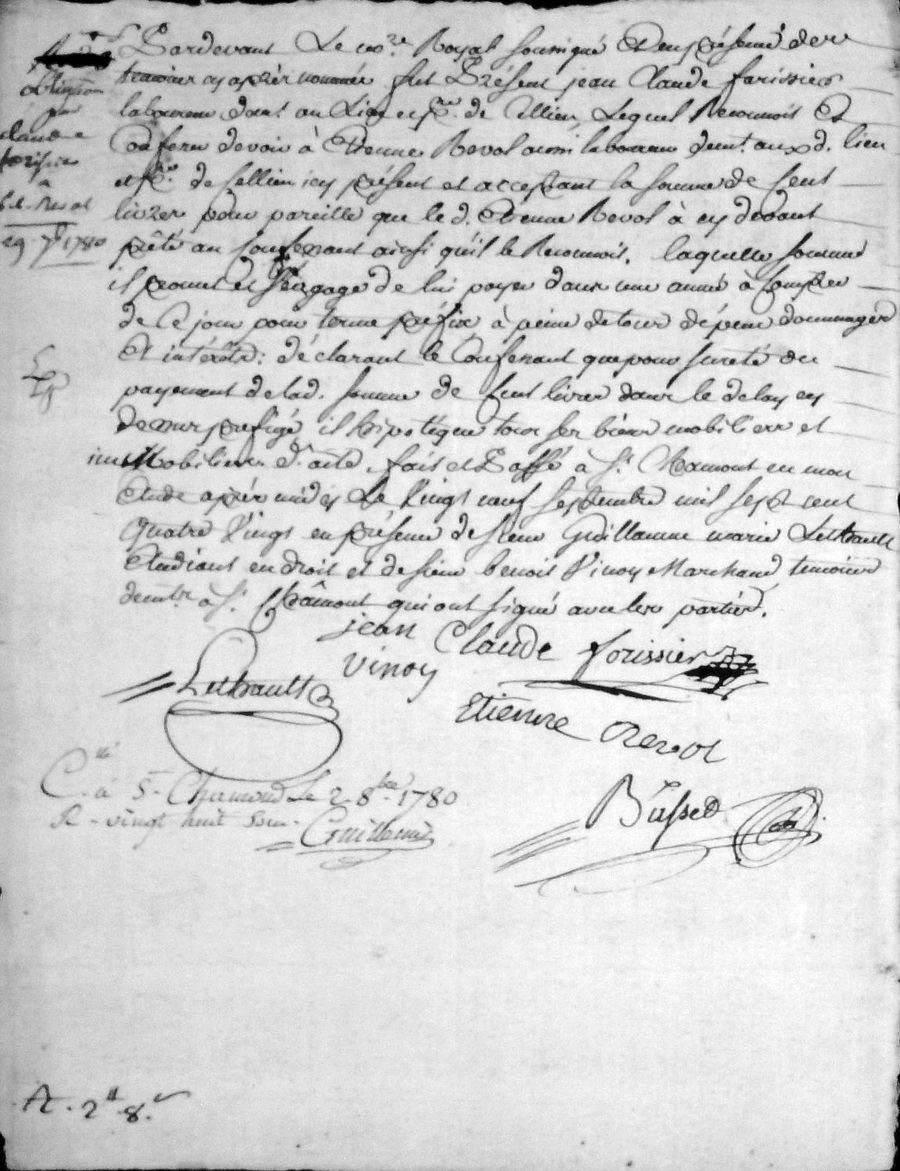 obligation
par
claude
forissier
à E. Revol
29 7bre 1780
Pardevant Le no.re Royal soussigné Et en présence des
temoins cy après nommés fut Présent jean Claude forissier
laboureur demt au Lieu et psse de Cellieu, Lequel Reconnoit Et
Confesse devoir à Etienne Revol aussi laboureur demt. aux d. lieu
et psse de Cellieu icy présent et acceptant la somme de Cent
livres pour pareille que le d. Etienne Revol a cy devant
prêté au Confessant ainsi qu'il le Reconnoit. laquelle somme
il promet et s'engage de lui payer dans une année à Compter
de Ce jour pour terme préfix à peine de tous dépens dommages
Et intérêts: déclarant le Confessant que pour sureté du
payement de lad. somme de Cent livres dans le delay cy
dessus prefigé il hipotèque tous ses biens mobiliers et
immobiliers d. acte fait et Passé à St. Chamont en mon
Etude après midy Le Vingt neuf septembre mil sept cent
quatre Vingt en présence de sieur Guillaume marie Lethrault
Etudiant en droit et de sieur benoit Vinoy Marchand temoins
demts. à St. Chamont qui ont signé avec les parties.
jean Claude forissier
Vinoy
Lethrault
Etienne Revol
C.llé à St. Chamond le 2 8bre 1780
R. vingt huit sous.
Guillaume
Basset
A. 2ll 8.s